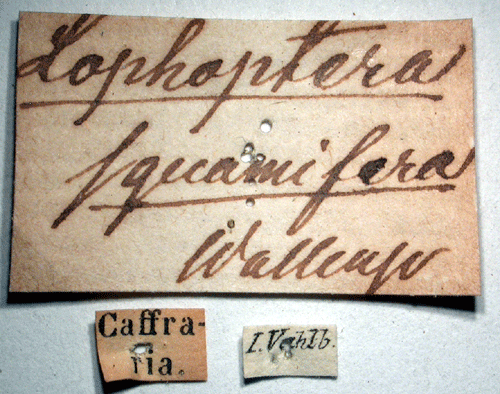 Lophoptera
squamifera
Wallengr
Caffra-
ria.
J. Wahlb.